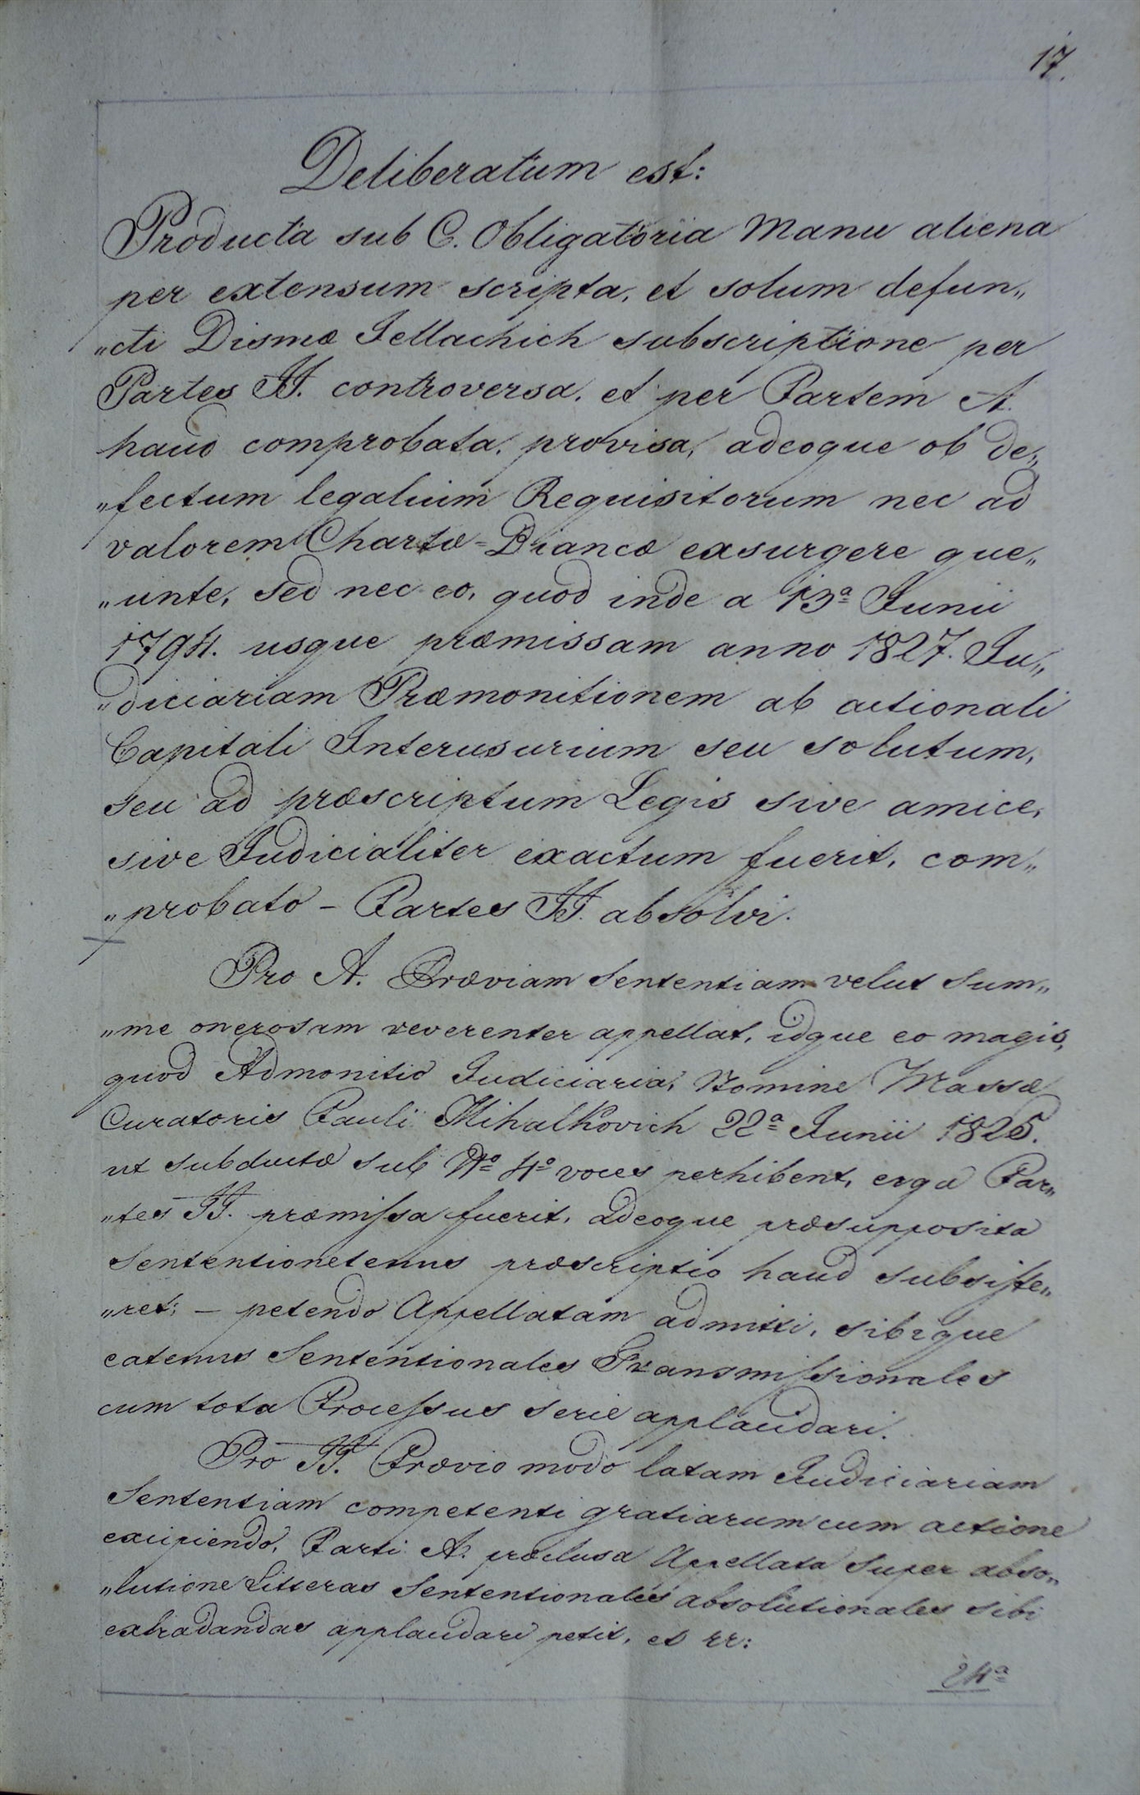 17.
Deliberatum est:
Producta sub C. Obligatoria Manu aliena
per extensum scripta, et solum defun„
„cti Dismæ Jellachich subscriptione per
Partes II. controversa, et per Partem A.
haud comprobata, provisa, adeoque ob de„
„fectum legalium Requisitorum nec ad
valorem Chartæ-Biancæ exsurgere que„
„unte, sed nec eo, quod inde a 13ª Junii
1794. usque præmissam anno 1827. Ju„
„diciariam Præmonitionem ab actionali
Capitali Interusurium seu solutum,
seu ad præscriptum Legis sive amice,
sive Judicialiter exactum fuerit, com„
„probato – Partes II. absolvi.
Pro A. Præviam Sententiam velut Sum„
„me onerosam reverenter appellat, idque eo magis,
quod Admonitio Judiciaria, Nomine Massæ
Curatoris Pauli Mihalkovich 22ª Junii 1825.
ut subductæ sub Nº 4º voces perhibent, erga Par„
„tes II. præmissa fuerit, adeoque præsupposita
Sententionetenus præscriptio haud subsiste„
„ret; – petendo Appellatam admitti, sibique
eatenus Sententionales Transmissionales
cum tota Processus serie applaudari.
Pro II. Prævio modo latam Judiciariam
Sententiam competenti gratiarum cum actione
excipiendo, Parti A. præclusa Appellata super abso„
„lutione Litteras Sententionales absolutionales sibi
extradandas applaudari petit, et rr:
24ª